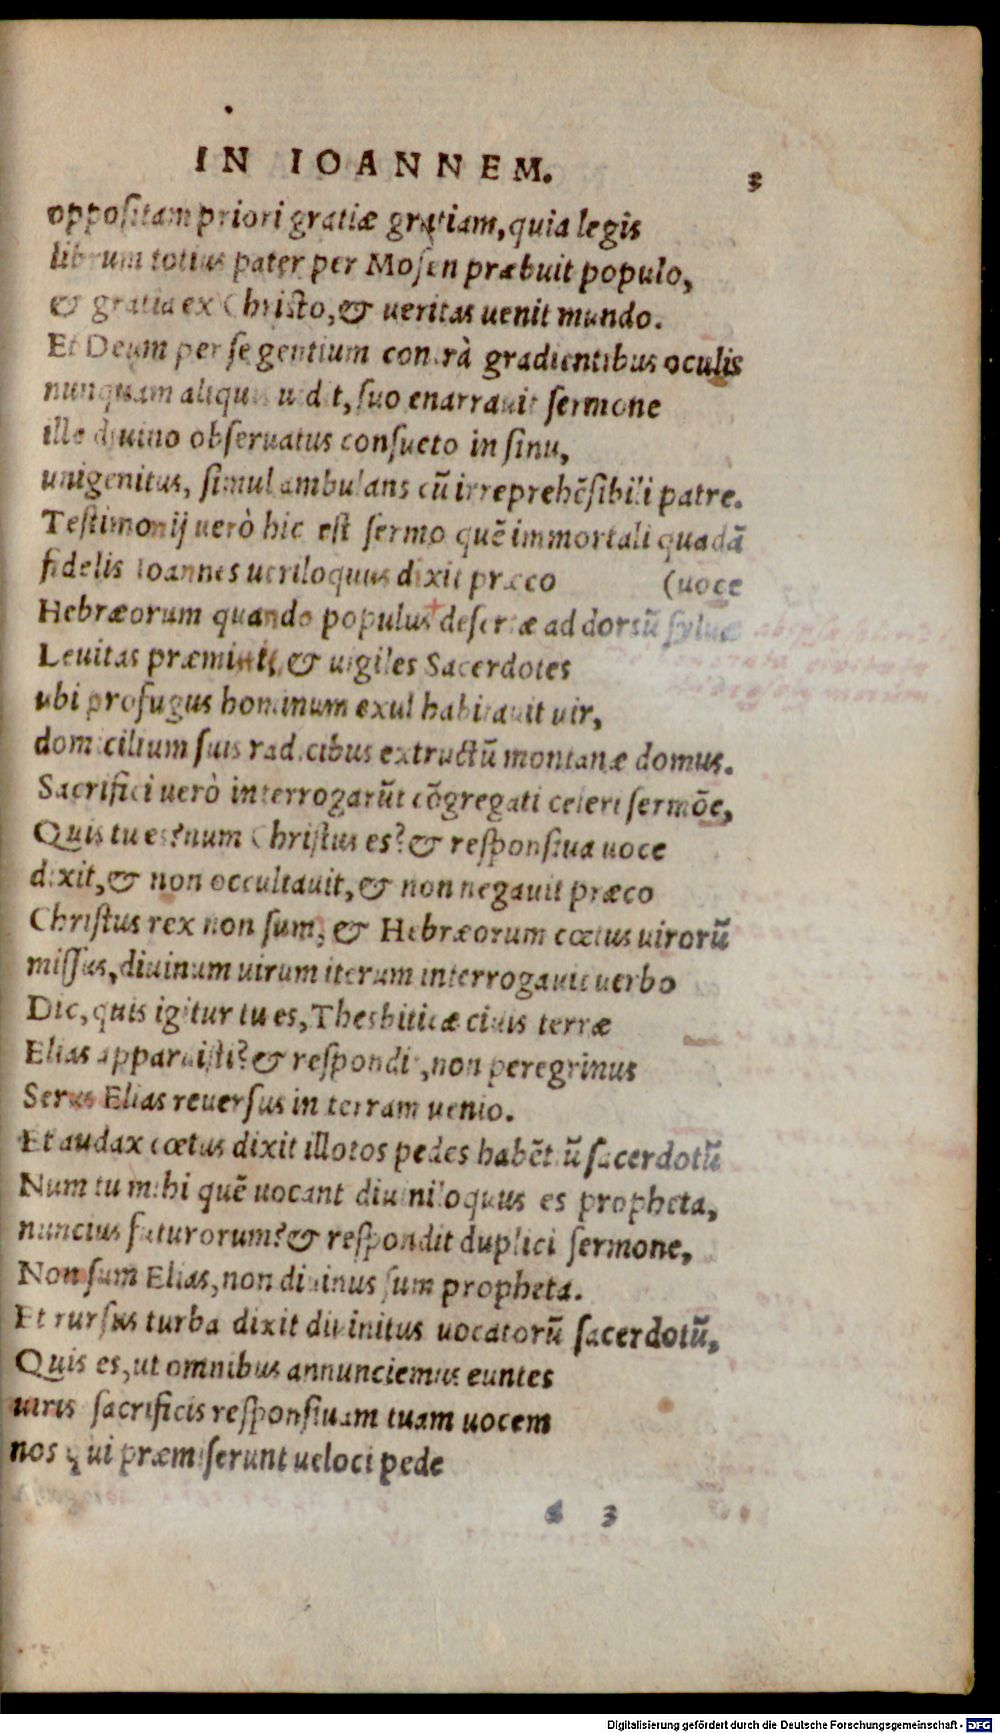 IN IOANNEM.
3
oppositam priori gratiæ gratiam, quia legis
librum totius pater per Mosen præbuit populo,
& gratia ex Christo, & ueritas uenit mundo.
Et Deum per se gentium contrà gradientibus oculis
nunquam aliquis uidit, suo enarrauit sermone
ille diuino obseruatus consueto in sinu,
unigenitus, simul ambulans cũ irreprehẽsibili patre.
Testimonij uerò hic est sermo quẽ immortali quadã
fidelis Ioannes ueriloquus dixit præco (uoce
Hebræorum quando populus desertæ ad dorsũ syluæ
Leuitas præmisit, & uigiles Sacerdotes
ubi profugus hominum exul habitauit uir,
domicilium suis radicibus extructũ montanæ domus.
Sacrifici uerò interrogarũt cõgregati celeri sermõe,
Quis tu es? num Christus es? & responsiua uoce
dixit, & non occultauit, & non negauit præco
Christus rex non sum, & Hebræorum cœtus uirorũ
missus, diuinum uirum iterum interrogauit uerbo
Dic, quis igitur tu es, Thesbiticæ ciuis terræ
Elias apparuisti? & respondit, non peregrinus
Serus Elias reuersus in terram uenio.
Et audax cœtus dixit illotos pedes habẽtiũ sacerdotũ
Num tu mihi quẽ uocant diuiniloquus es propheta,
nuncius futurorum? & respondit duplici sermone,
Non sum Elias, non diuinus sum propheta.
Et rursus turba dixit diuinitus uocatorũ sacerdotũ,
Quis es, ut omnibus annunciemus euntes
uiris sacrificis responsiuam tuam uocem
nos qui præmiserunt ueloci pede
a 3
Digitalisierung gefördert durch die Deutsche Forschungsgemeinschaft - DFG